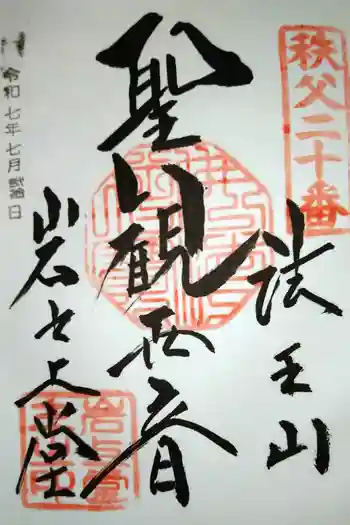 秩父二十番
法王山
聖観世音
岩之上堂
令和七年七月弐拾日